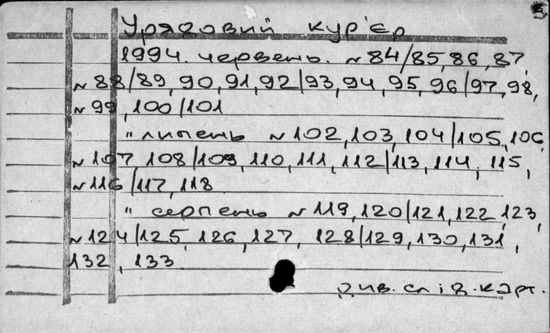 5
Урядовий кур'єр
1994. червень. №84/85,86,87,
№88/89,90,91,92/93,94,95,96/97,98,
№99,100/101
" липень №102,103,104/105,106,
№107,108/109,110,111,112/113,114,115,
№116/117,118
" серпень №119,120/121,122,123,
№124/125,126,127,128/129,130,131,
132,133
див. слід. карт.